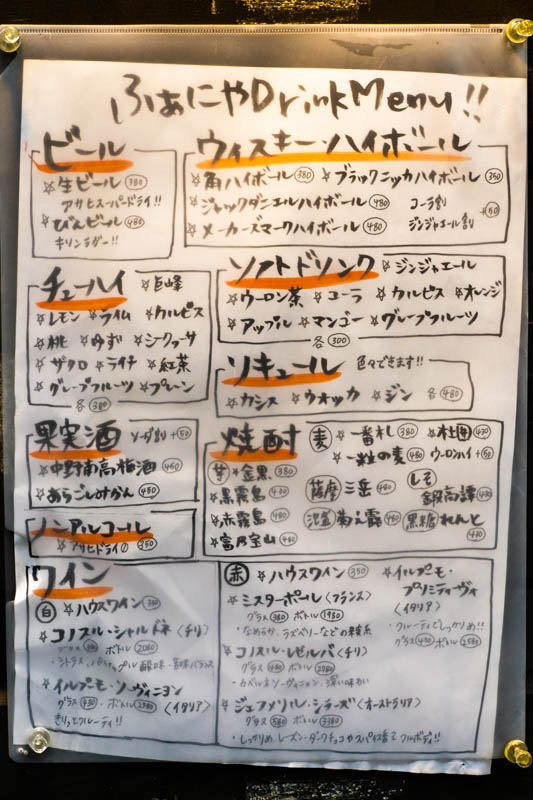 ふぁにやDrinkMenu!!
ビール
☆生ビール 380
アサヒスーパードライ!!
☆びんビール 480
キリンラガー!!
ウィスキー・ハイボール
☆角ハイボール 380 ☆ブラックニッカハイボール 350
☆ジャックダニエルハイボール 480 コーラ割
☆メーカーズマークハイボール 480 ジンジャエール割 +50
チューハイ ☆巨峰
☆レモン ☆ライム ☆カルピス
☆桃 ☆ゆず ☆シークヮーサ
☆ザクロ ☆ライチ ☆紅茶
☆グレープフルーツ ☆プレーン
各380
ソフトドリンク ☆ジンジャエール
☆ウーロン茶 ☆コーラ ☆カルピス ☆オレンジ
☆アップル ☆マンゴー ☆グレープフルーツ
各300
リキュール 色々できます!!
☆カシス ☆ウオッカ ☆ジン 各480
果実酒 ソーダ割 +50
☆中野南高梅酒 450
☆あらごしみかん 450
ノンアルコール
☆アサヒドライ0 350
焼酎 麦 ☆一番札 380
☆一粒の麦 480 ウーロンハイ +50
芋 ☆金黒 380
☆黒霧島 430
☆赤霧島 480
☆富乃宝山 480
薩摩 ☆三岳 480 しそ ☆鍛高譚 430
☆菊之露 480 黒糖 ☆れんと 430
ワイン
白 ☆ハウスワイン 350
☆コノスル・シャルドネ〈チリ〉
グラス ボトル 2080
☆イルプーモ・ソーヴィニヨン
グラス 430 ・ボトル 2580 〈イタリア〉
きりっとフルーティ!!
赤 ☆ハウスワイン 350
☆ミスターポール〈フランス〉
グラス 380 ボトル 1980
・なめらか、ラズベリーなどの果実系
☆コノスル・レゼルバ〈チリ〉
グラス 430 ボトル 2780
・カベルネソーヴィニョン・深い味わい
☆ジェフメリル・シラーズ〈オーストラリア〉
グラス 580 ボトル 3380
・しっかりめ、レーズン・ダークチョコやスパイス香る フルボディ!!
☆イルプーモ・
プリミティーヴォ
〈イタリア〉
・フルーティでしっかりめ!!
グラス 430 ボトル 2580